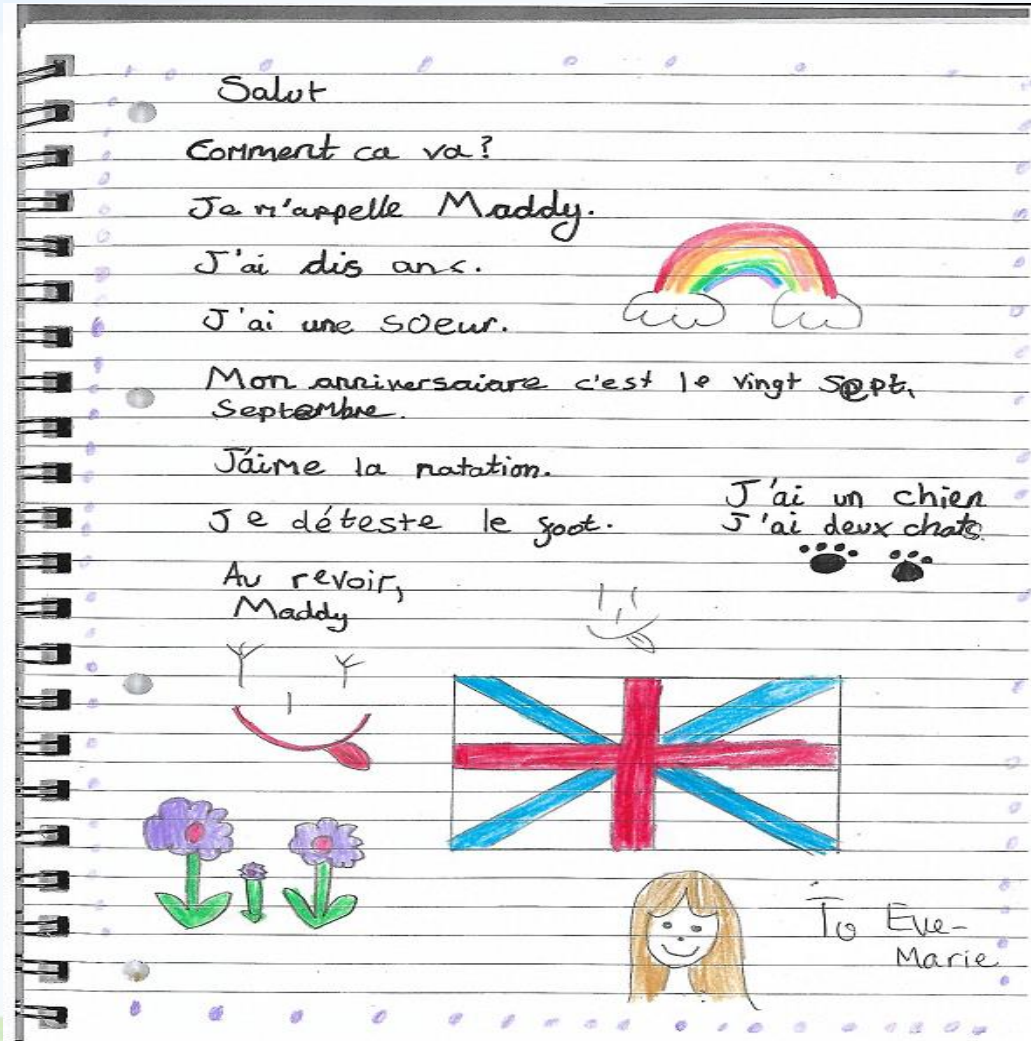 Salut
Comment ca va?
Je m'appelle Maddy.
J'ai dis ans.
J'ai une soeur.
Mon anniversaiare c'est le vingt sept,
Septembre.
J'aime la natation.
Je déteste le foot.
J'ai un chien
J'ai deux chats.
Au revoir,
Maddy
To Eve-
Marie